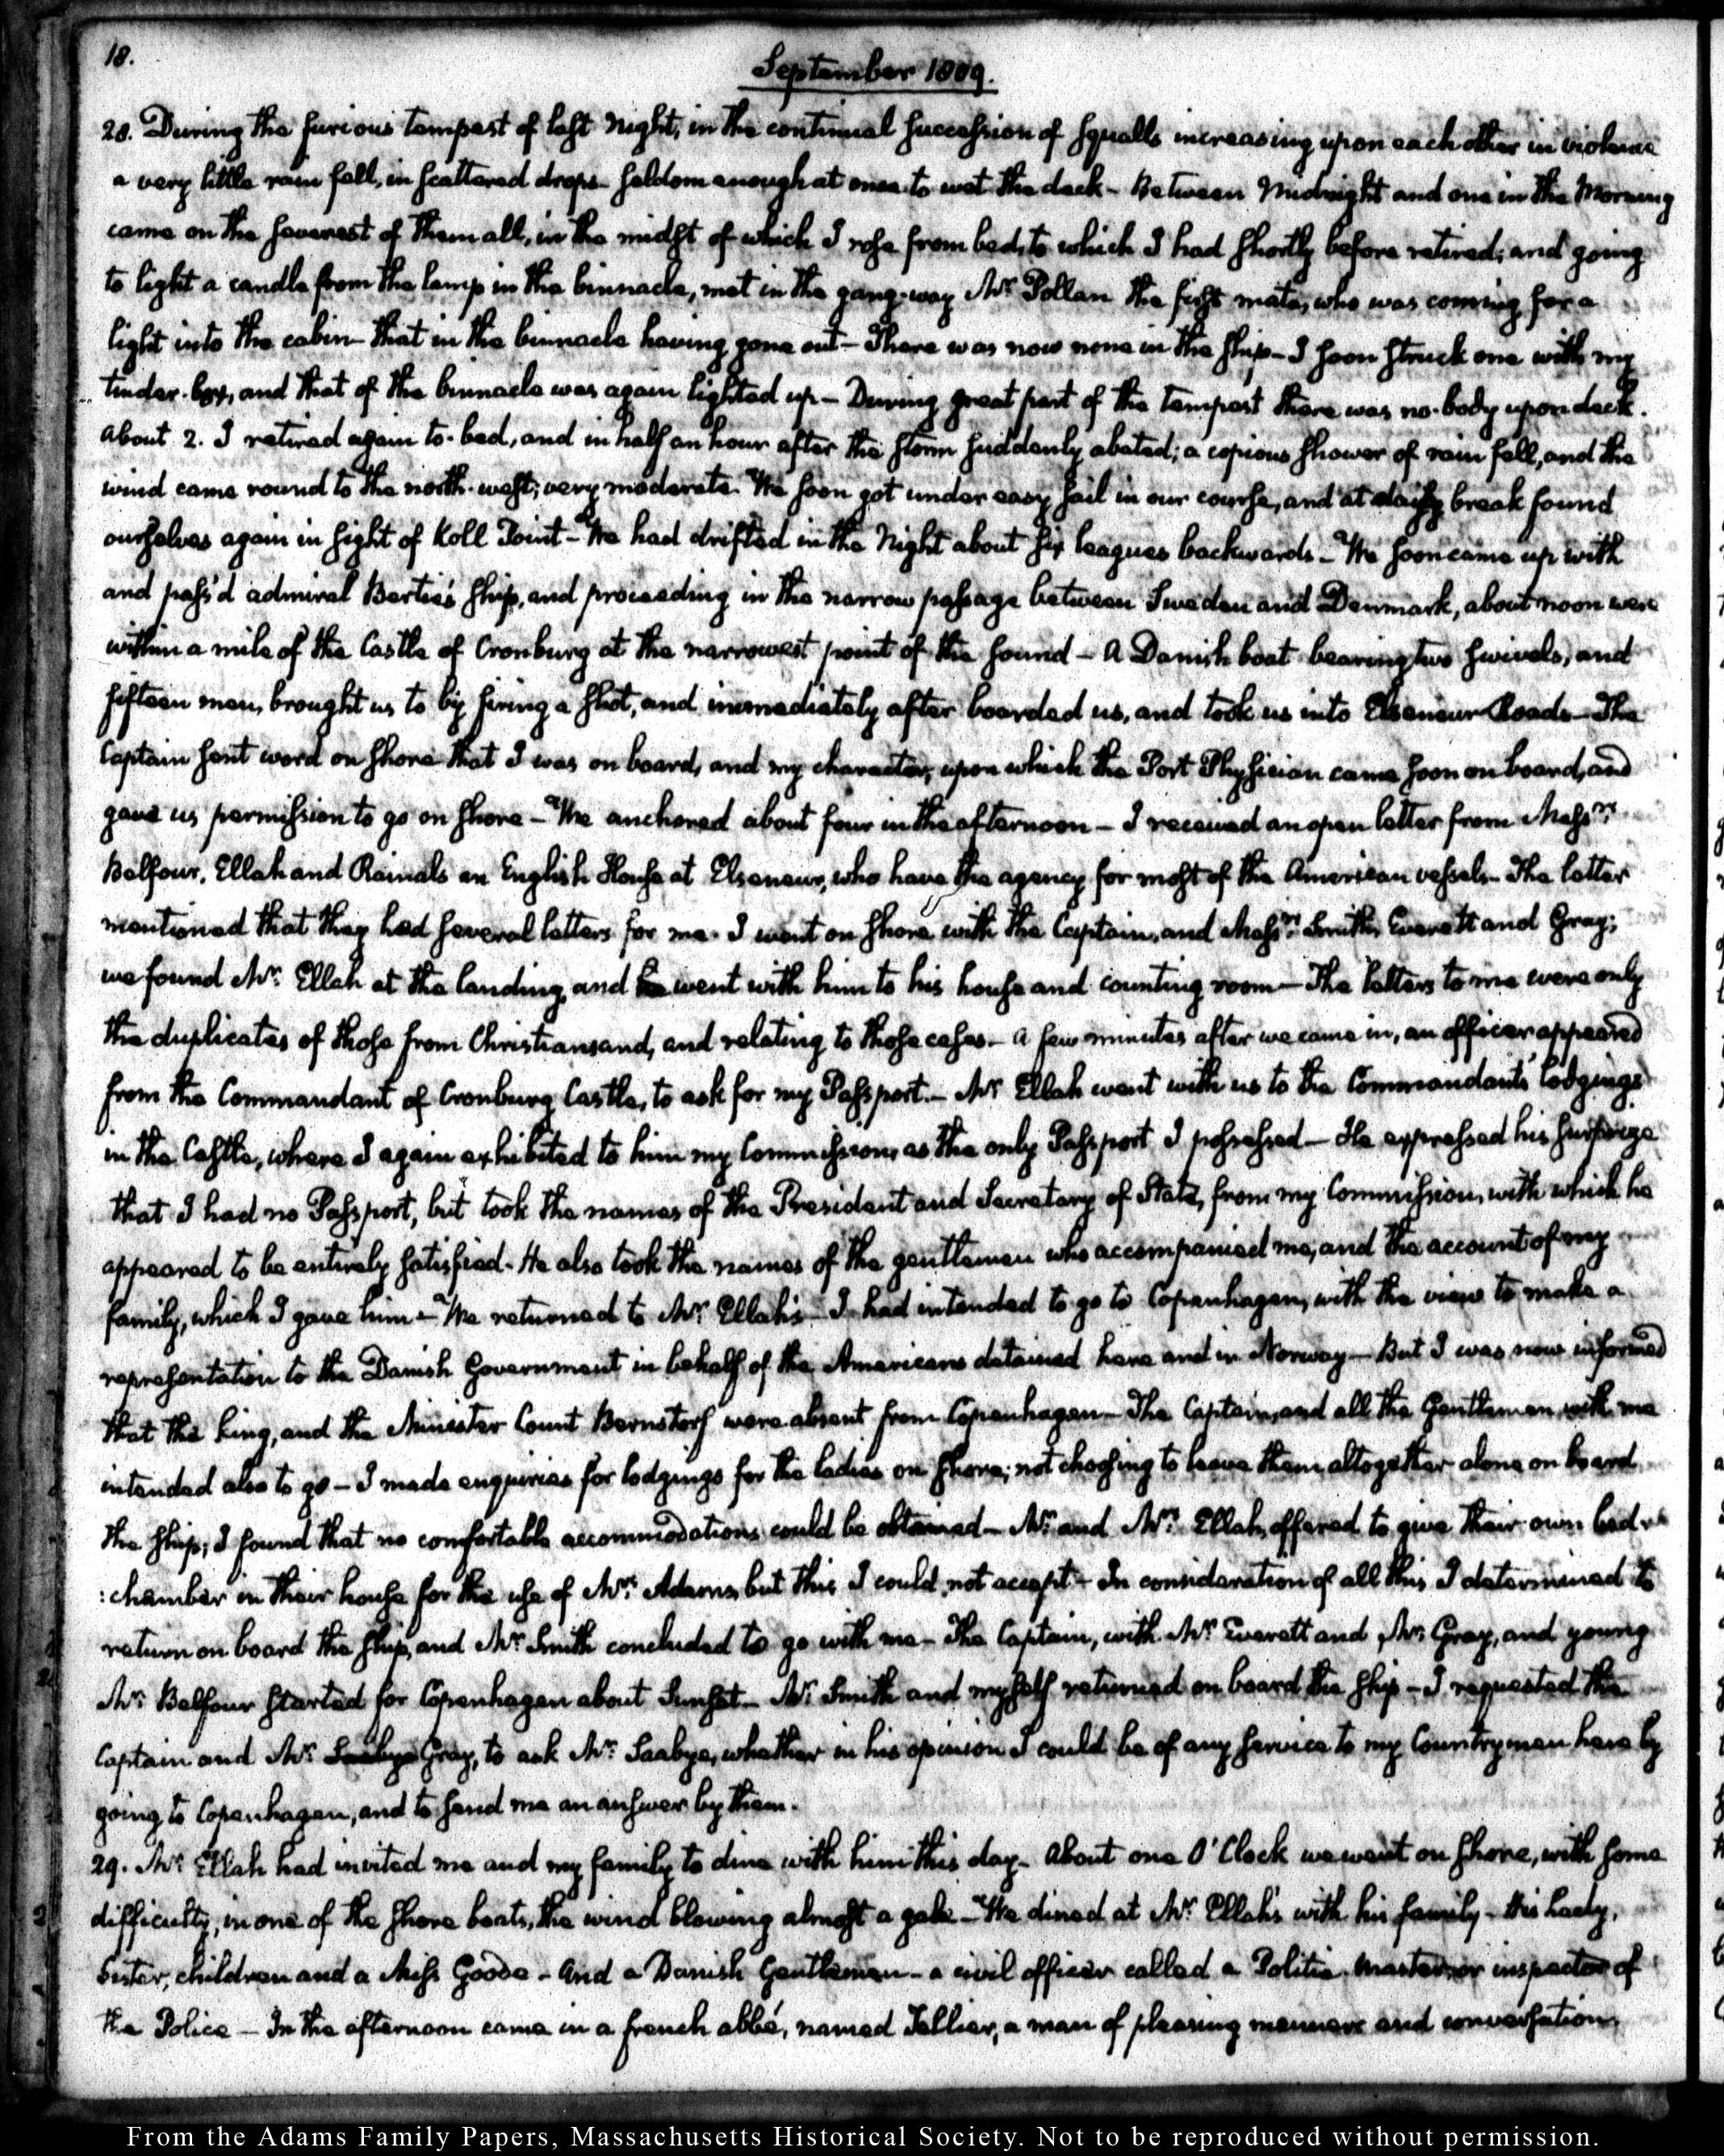 18.
September 1809.
28. During the furious tempest of last Night, in the continual succession of squalls increasing upon each other in violence
a very little rain fell, in scattered drops - seldom enough at once to wet the deck - Between Midnight and one in the Morning
came on the severest of them all, in the midst of which I rose from bed, to which I had shortly before retired; and going
to light a candle from the lamp in the binnacle, met in the gang-way Mr Pollan the first mate, who was coming for a
light into the cabin - that in the binnacle having gone out - There was now none in the ship - I soon struck one with my
tinder-box, and that of the binnacle was again lighted up - During great part of the tempest there was no-body upon deck.
about 2. I retired again to-bed, and in half an hour after the storm suddenly abated; a copious shower of rain fell, and the
wind came round to the north-west; very moderate. We soon got under easy sail in our course, and at day break found
ourselves again in sight of Koll Point - We had drifted in the Night about six leagues backwards - We soon came up with
and pass'd admiral Bertie's ship, and proceeding in the narrow passage between Sweden and Denmark, about noon were
within a mile of the Castle of Cronburg at the narrowest point of the sound - A Danish boat bearing two swivels, and
fifteen men, brought us to by firing a shot, and immediately after boarded us, and took us into Elseneur Roads - The
Captain sent word on shore that I was on board, and my character, upon which the Port Physician came soon on board, and
gave us permission to go on shore - We anchored about four in the afternoon - I received an open letter from Messrs.
Balfour, Ellah and Rainals an English House at Elseneur, who have the agency for most of the American vessels - The letter
mentioned that they had several letters for me. I went on shore with the Captain, and Messrs. Smith, Everett and Gray;
we found Mr. Ellah at the landing, and went with him to his house and counting room - The letters to me were only
the duplicates of those from Christiansand, and relating to those cases - a few minutes after we came in, an officer appeared
from the Commandant of Cronburg Castle, to ask for my Passport. - Mr Ellah went with us to the Commandants' lodgings
in the Castle, where I again exhibited to him my Commission, as the only Passport I possessed - He expressed his surprize
that I had no Passport, but took the names of the President and Secretary of State, from my Commission, with which he
appeared to be entirely satisfied - He also took the names of the gentlemen who accompanied me, and the account of my
family, which I gave him - We returned to Mr. Ellah's - I had intended to go to Copenhagen, with the view to make a
representation to the Danish Government in behalf of the Americans detained here and in Norway - But I was now informed
that the king, and the Minister Count Bernstorf were absent from Copenhagen - The Captain, and all the Gentlemen with me
intended also to go - I made enquiries for lodgings for the ladies on shore; not choosing to leave them altogether alone on board
the ship; I found that no comfortable accommodations could be obtained - Mr. and Mrs. Ellah, offered to give their own bed-
:chamber in their house for the use of Mrs. Adams, but this I could not accept - In consideration of all this I determined to
return on board the ship, and Mr Smith concluded to go with me - The Captain, with Mr Everett and Mr. Gray, and young
Mr. Balfour started for Copenhagen about Sunset - Mr. Smith and myself returned on board the ship - I requested the
Captain and Mr. Saabye Gray, to ask Mr. Saabye, whether in his opinion I could be of any service to my Countrymen here by
going to Copenhagen, and to send me an answer by them.
29. Mr. Ellah had invited me and my family to dine with him this day - About one O'Clock we went on shore, with some
difficulty, in one of the shore boats, the wind blowing almost a gale - We dined at Mr. Ellah's with his family - His Lady,
Sister, children and a Miss Goode - And a Danish Gentleman - a civil officer called a Politie-Master, or inspector of
the Police - In the afternoon came in a french abbé, named Tellier, a man of pleasing manners and conversation,
From the Adams Family Papers, Massachusetts Historical Society. Not to be reproduced without permission.